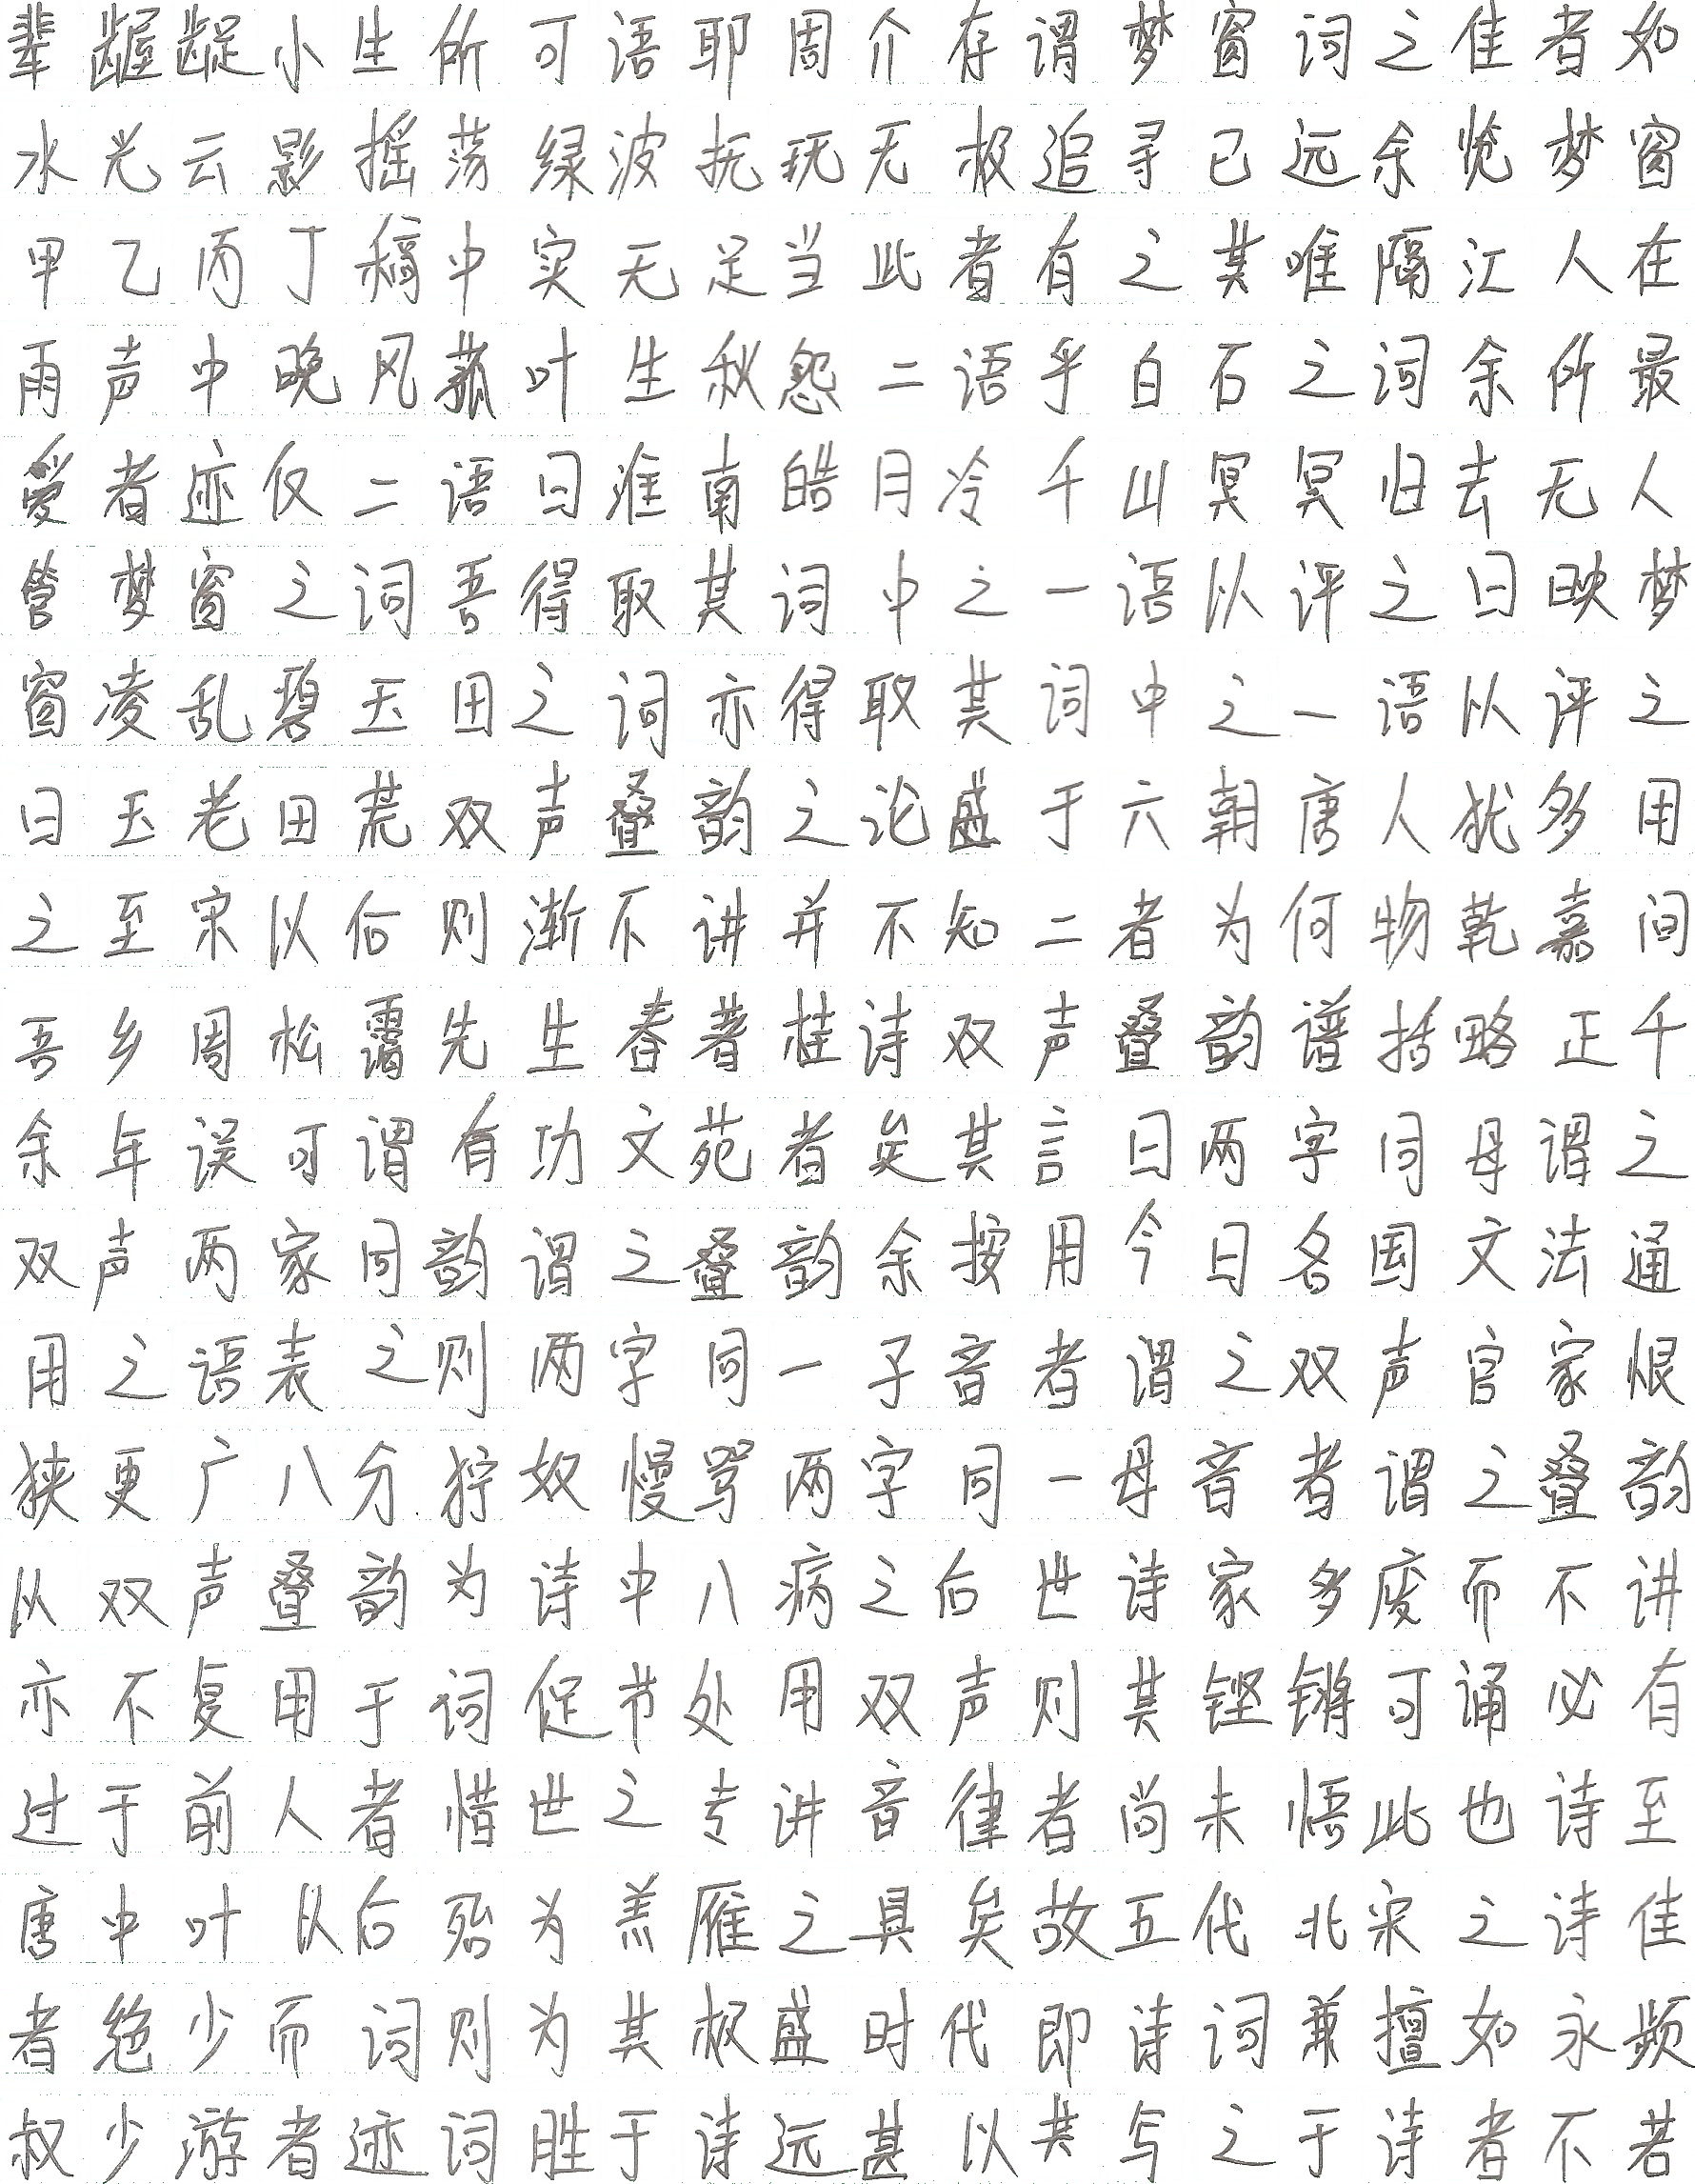 辈龌龊小生所可语耶周介存谓梦窗词之佳者如
水光云影摇荡绿波抚玩无极追寻已远余览梦窗
甲乙丙丁稿中实无足当此者有之其唯隔江人在
雨声中晚风菰叶生秋怨二语乎白石之词余所最
爱者亦仅二语曰淮南皓月冷千山冥冥归去无人
管梦窗之词吾得取其词中之一语以评之曰映梦
窗凌乱碧玉田之词亦得取其词中之一语以评之
曰玉老田荒双声叠韵之论盛于六朝唐人犹多用
之至宋以后则渐不讲并不知二者为何物乾嘉间
吾乡周松霭先生春著桂诗双声叠韵谱括略正千
余年误可谓有功文苑者矣其言曰两字同母谓之
双声两家同韵谓之叠韵余按用今日各国文法通
用之语表之则两字同一子音者谓之双声官家恨
狭更广八分狞奴慢骂两字同一母音者谓之叠韵
从双声叠韵为诗中八病之后世诗家多废而不讲
亦不复用于词促节处用双声则其铿锵可诵必有
过于前人者惜世之专讲音律者尚未悟此也诗至
唐中叶以后殆为羔雁之具矣故五代北宋之诗佳
者绝少而词则为其极盛时代即诗词兼擅如永频
叔少游者迹词胜于诗远甚以其写之于诗者不若